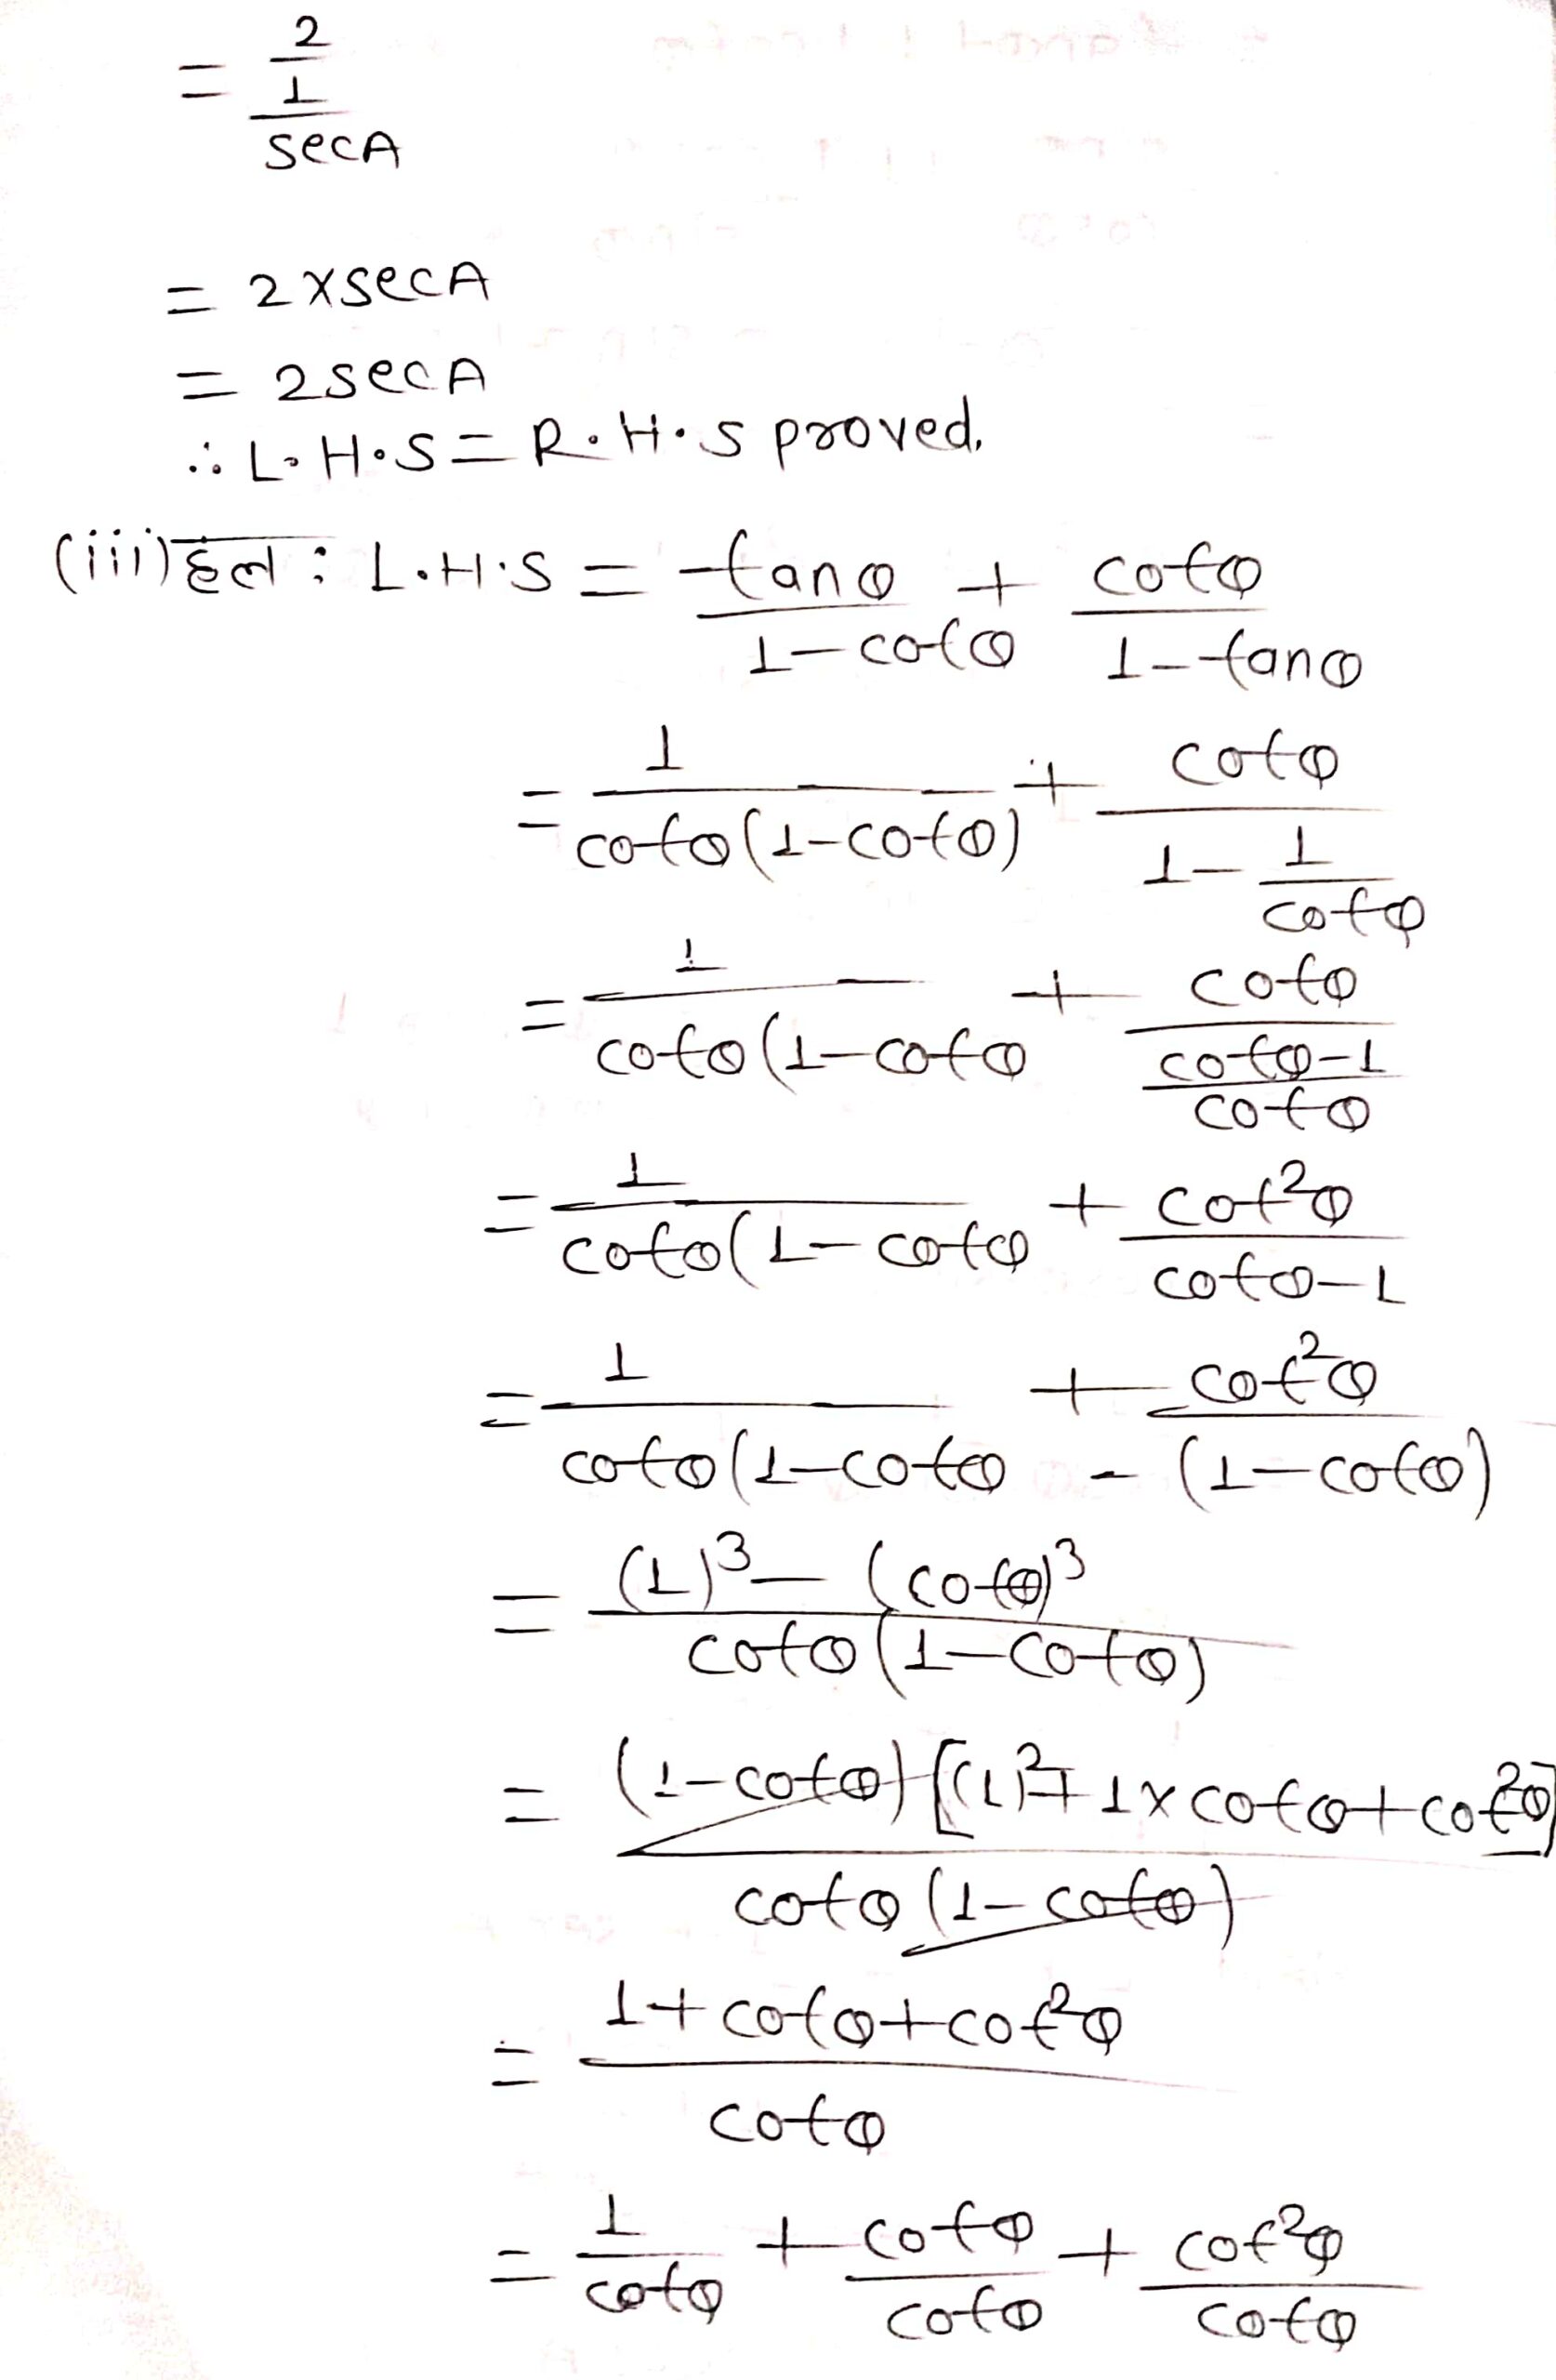 = 2/(1/secA)
= 2×secA
= 2secA
∴ L.H.S = R.H.S proved.
(iii) हल : L.H.S = tanθ/(1-cotθ) + cotθ/(1-tanθ)
= 1/(cotθ(1-cotθ)) + cotθ/(1-1/cotθ)
= 1/(cotθ(1-cotθ) + cotθ/((cotθ-1)/cotθ)
= 1/(cotθ(1-cotθ) + cot²θ/(cotθ-1)
= 1/(cotθ(1-cotθ) + cot²θ/-(1-cotθ)
= ((1)³-(cotθ)³)/(cotθ(1-cotθ))
= (1-cotθ)[(1)²+1×cotθ+cot²θ]/(cotθ(1-cotθ))
= (1+cotθ+cot²θ)/cotθ
= 1/cotθ + cotθ/cotθ + cot²θ/cotθ